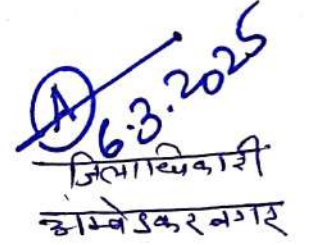 A
6.3.2025
जिलाधिकारी
अम्बेडकरनगर